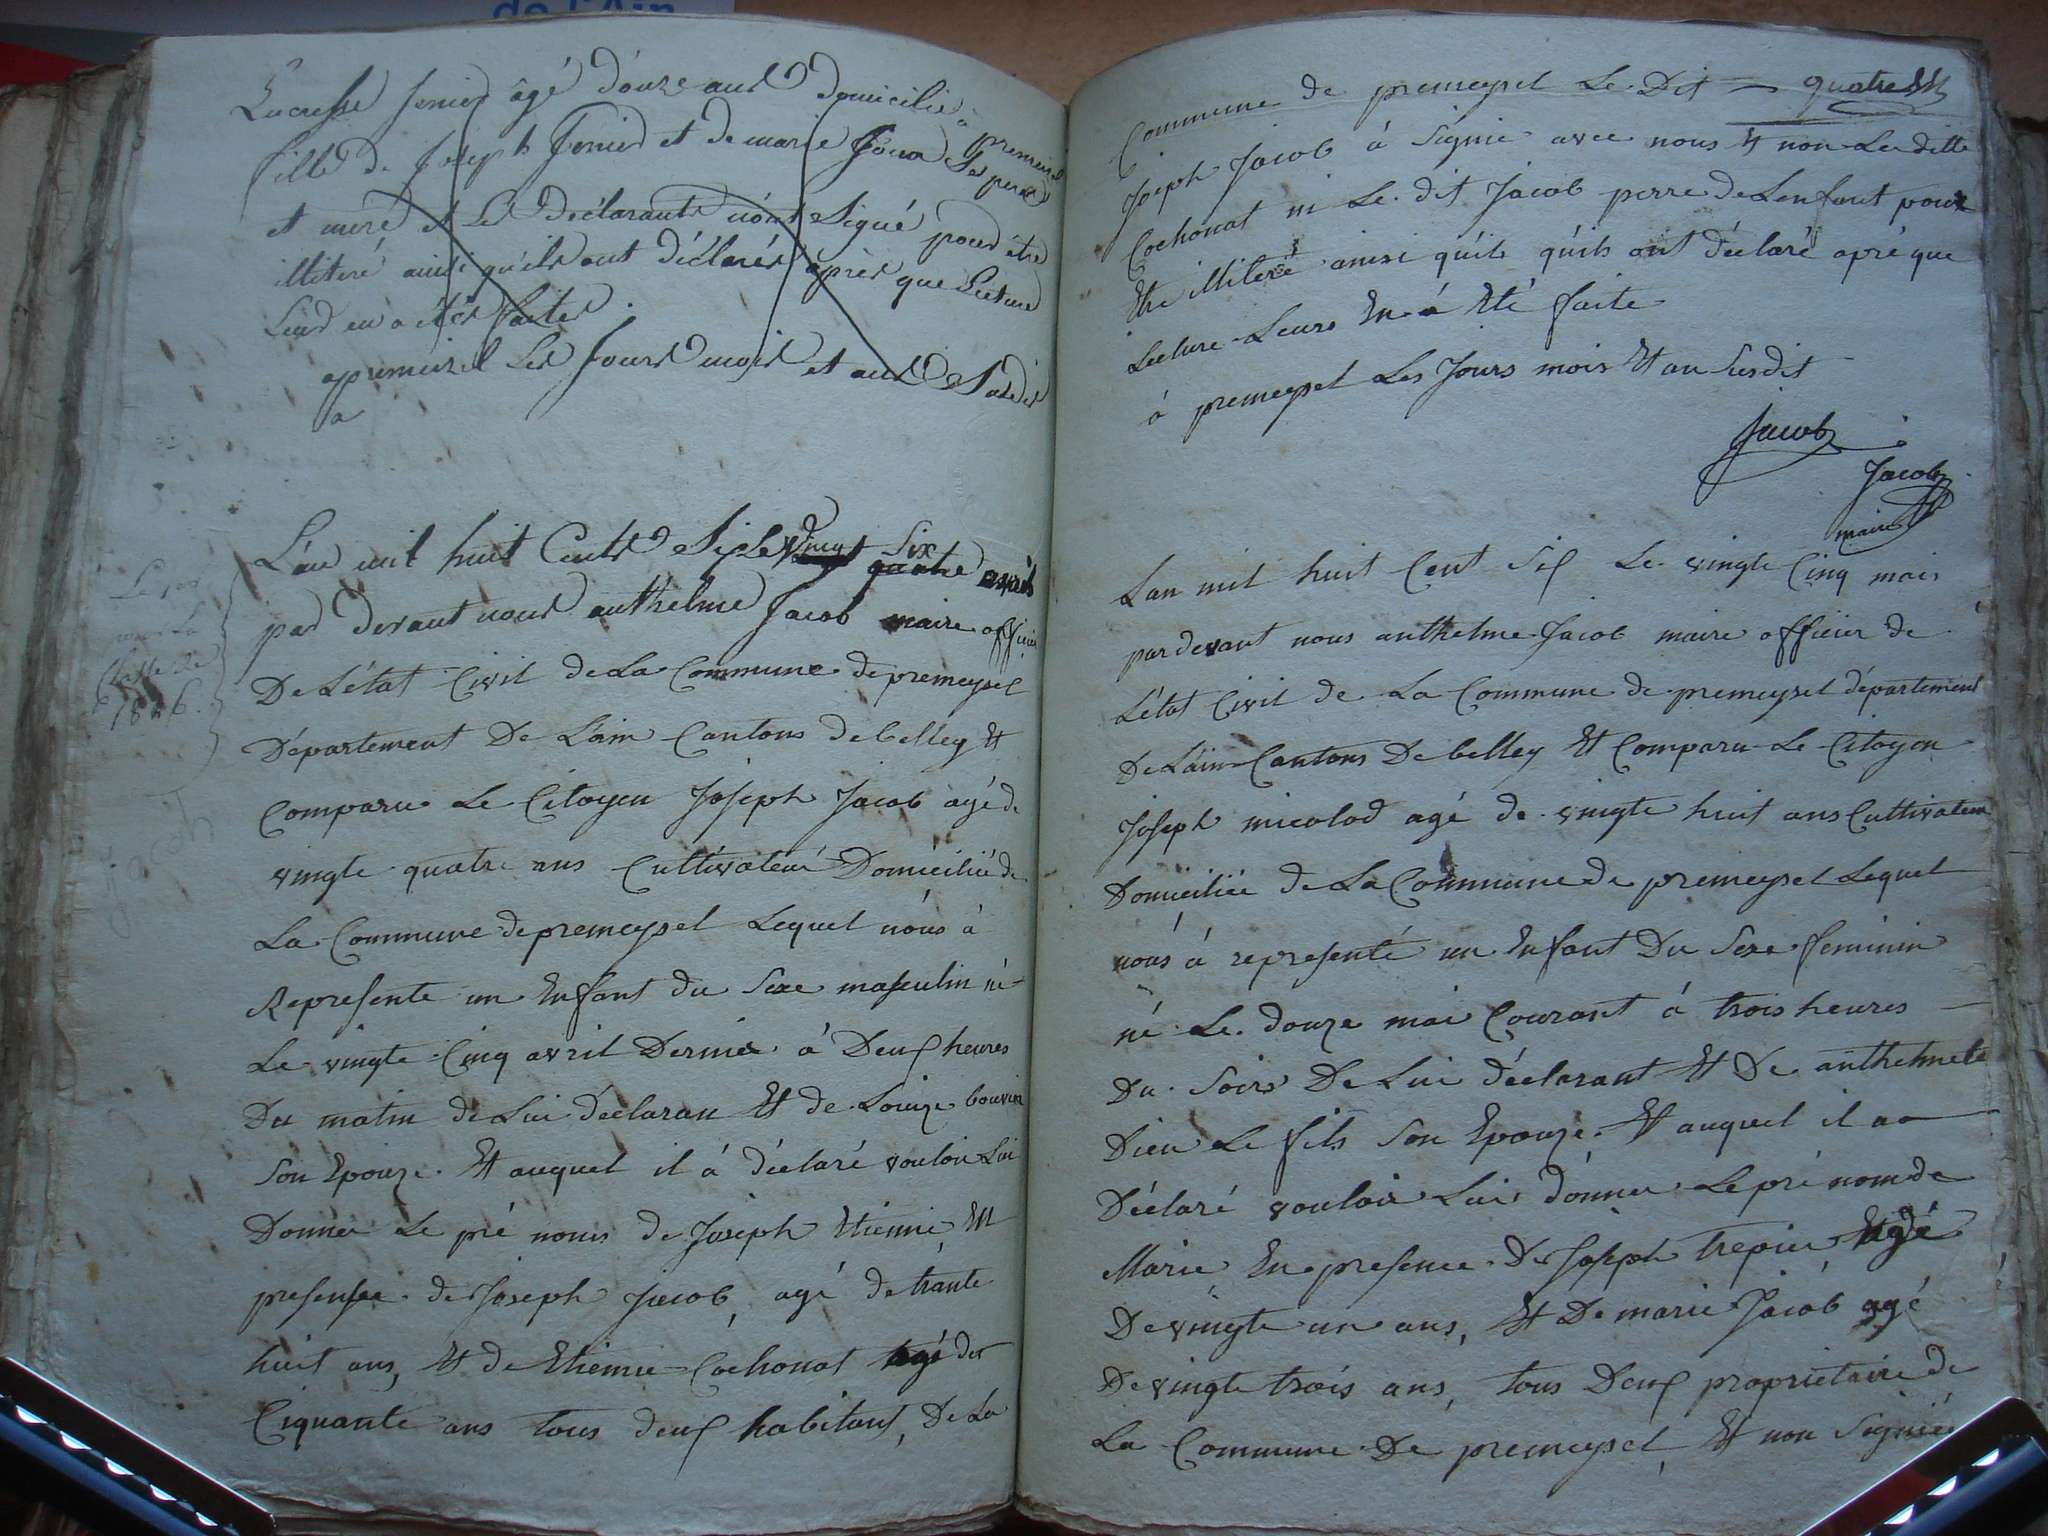 de l'Ain
Lucresse fenier âgé d'onze ans domicilié à premeisel
fille de Joseph fenier et de marie Ses pere
et mere et Les Declarants n'ont Signé pour être
illiteré ainsi qu'ils ont déclarés après que Lecture
Leur en a étés faites
a premeisel Les Jours mois et ans Susdits
L'an mil huit Cents Six Le vingt six avril
par devant nous anthelme Jacob maire officier
De L'état Civil de La Commune de premeysel
Département De L'ain Cantons de belley Et
Comparu Le Citoyen Joseph Jacob agé de
vingte quatre ans Cultivateur Domicilié de
La Commune de premeysel Lequel nous à
Represente un Enfant du Sexe masculin né
Le vingte Cinq avril Dernier à Deux heures
Du matin de Lui déclaran Et de Louize bouvier
Son Epouze. Et auquel il á déclaré vouloir Lui
Donner Le pré noms de Joseph Etienne En
presensee de Joseph Jacob, agé de trante
huit ans, Et de Etienne Cochonat agé de
Ciquante ans tous deux habitant, De La
Le
La
Classe de
1826.
Commune de premeysel Le Dit quatre
Joseph Jacob à Signie avec nous Et non Le ditte
Cochonat ni Le dit Jacob perre de Lenfant pour
Etre illiteré ainsi qu'ils qu'ils ont déclaré apré que
Lecture Leurs En á Eté faite
á premeysel Les Jours mois Et an Susdit
Jacob
Jacob
maire
Lan mil huit Cent Six Le vingte Cinq mai
par devant nous anthelme Jacob maire officier de
L'état Civil de La Commune de premeysel département
De L'ain Cantons De belley Et Comparu Le Citoyen
Joseph micolod agé de vingte huit ans Cultivateur
Domiciliée de La Commune de premeysel Lequel
nous á representé un Enfant Du Sexe feminin
né Le douze mai Courant á trois heures
Du Soirs De Lui déclarant Et De anthelmete
Dieu Le fils Son Epouze. Et auquel il a
Déclaré vouloir Lui donner Le pré nom de
Marie En presence De Joseph trepier agé
De vingte un ans, Et De marie Jacob agé
De vingte trois ans, tous Deux proprietaire de
La Commune De premeysel, Et non Signiée